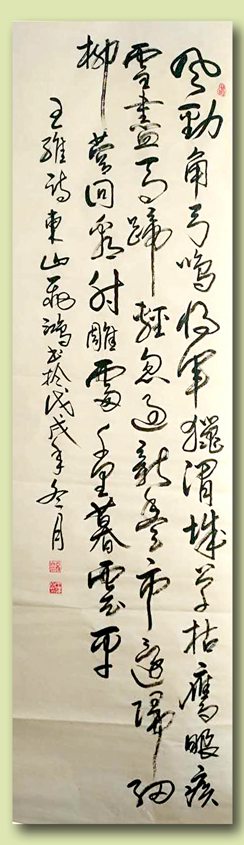 風勁角弓鳴將軍獵渭城草枯鷹眼疾
雪盡馬蹄輕忽過新豐市還歸細
柳營回看射雕處千里暮雲平
王維詩東山鴻書於戊戌年冬月